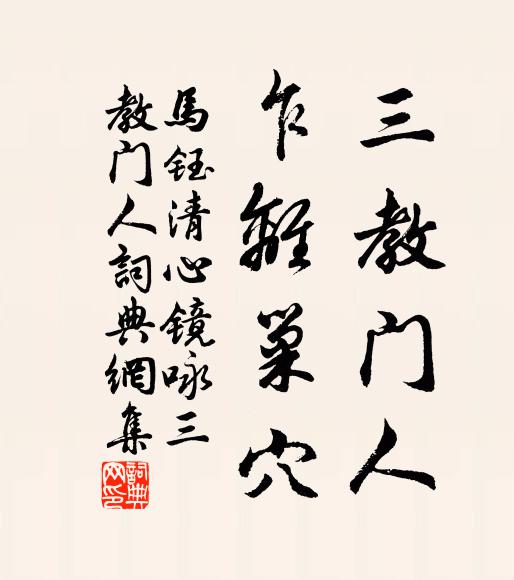 三教门人
乍離巢穴
馬鈺清心鏡咏三
教门人詞典網集
詞典網印